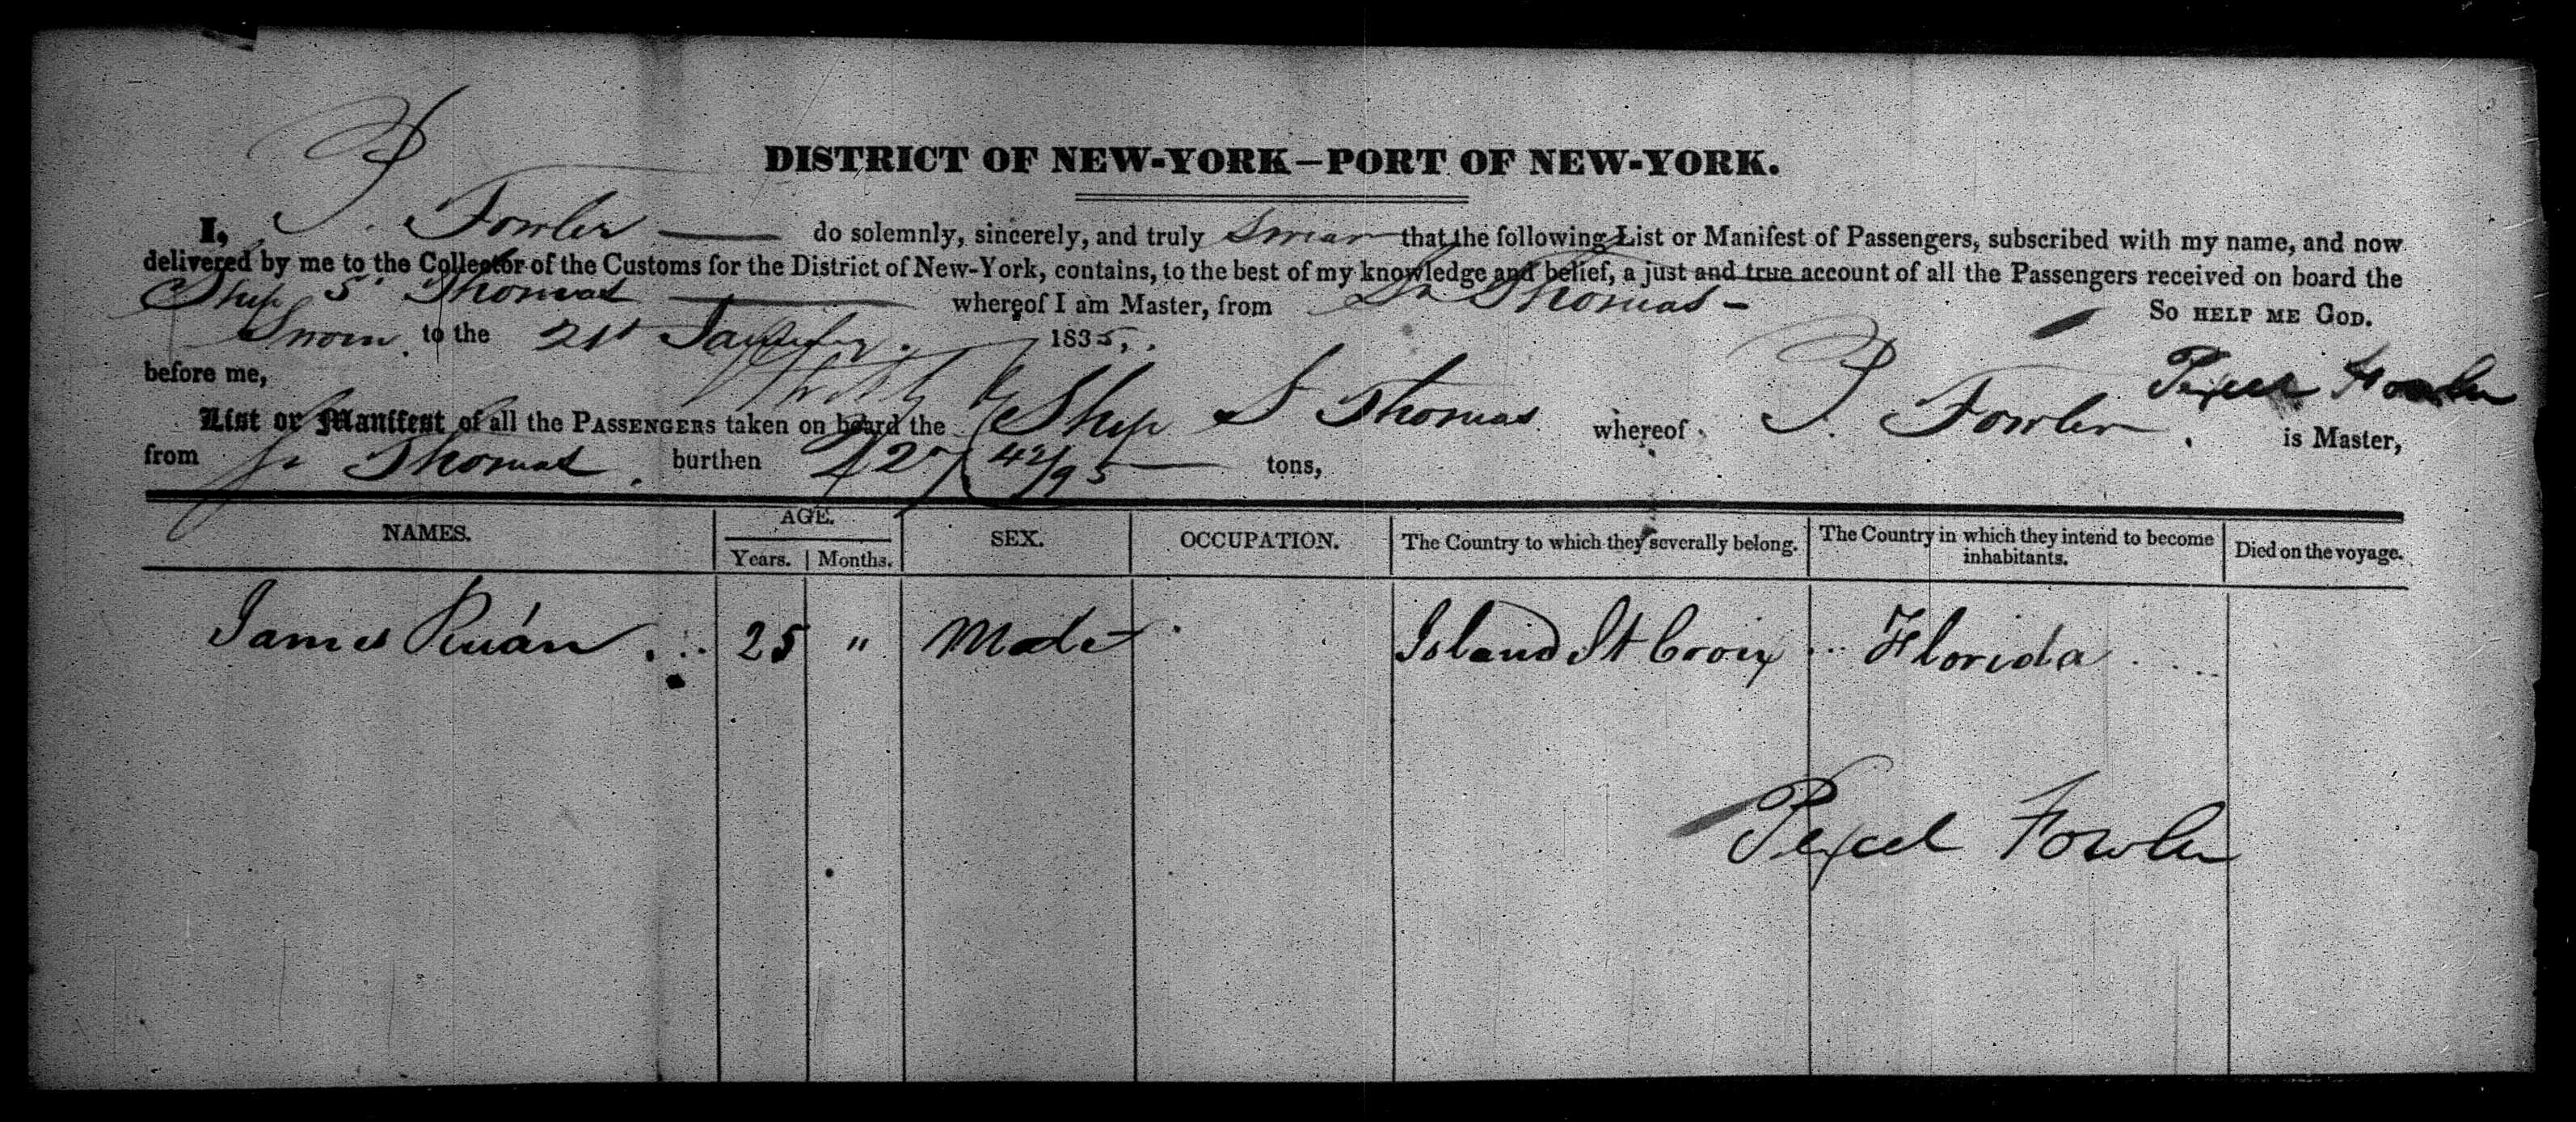 DISTRICT OF NEW-YORK—PORT OF NEW-YORK.
I, P. Fowler — do solemnly, sincerely, and truly Swear that the following List or Manifest of Passengers, subscribed with my name, and now
delivered by me to the Collector of the Customs for the District of New-York, contains, to the best of my knowledge and belief, a just and true account of all the Passengers received on board the
Ship St Thomas — whereof I am Master, from St Thomas —
So HELP ME GOD.
Sworn to the 21st January 1835,
before me,
Fowler
List or Manifest of all the PASSENGERS taken on board the Ship St Thomas whereof P. Fowler is Master,
from St Thomas burthen 42/95 — tons,
NAMES. AGE. Years. Months. SEX. OCCUPATION. The Country to which they severally belong. The Country in which they intend to become inhabitants. Died on the voyage.
James Ruán 25 " Male Island St Croix Florida
Fowler